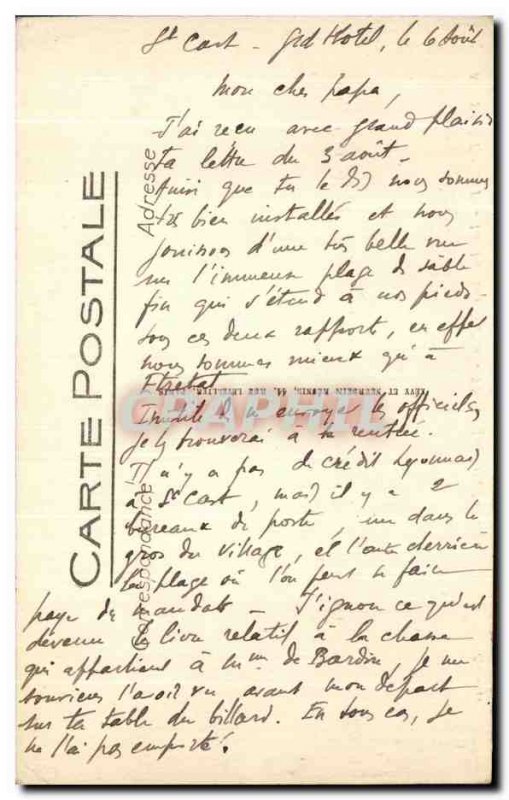 St Cast - Grd Hotel, le 6 Août
Mon cher papa,
J'ai reçu avec grand plaisir
ta lettre du 3 août -
Ainsi que tu le dis nous sommes
très bien installés et nous
jouissons d'une très belle vue
sur l'immense plage de sable
fin qui s'étend à nos pieds -
sous ces deux rapport, en effet
nous sommes mieux qu'à
Etretat -
Inutile de m'envoyer les officiels,
je les trouverai à la rentrée.
Il n'y a pas de crédit Lyonnais
à St Cast, mais il y a 2
bureaux de poste, un dans le
gros du village, et l'autre derrière
la plage où l'on peut se faire
payer des mandats - J'ignore ce qu'est
devenu le livre relatif à la chasse
qui appartient à Mme de Bardin, je me
souviens l'avoir vu avant mon départ
sur ta table du billard. En tous cas, je
ne l'ai pas emporté.
CARTE POSTALE
Adresse
Correspondance
LEVY ET NEURDEIN RÉUNIS, 44, RUE LETELLIER, PARIS